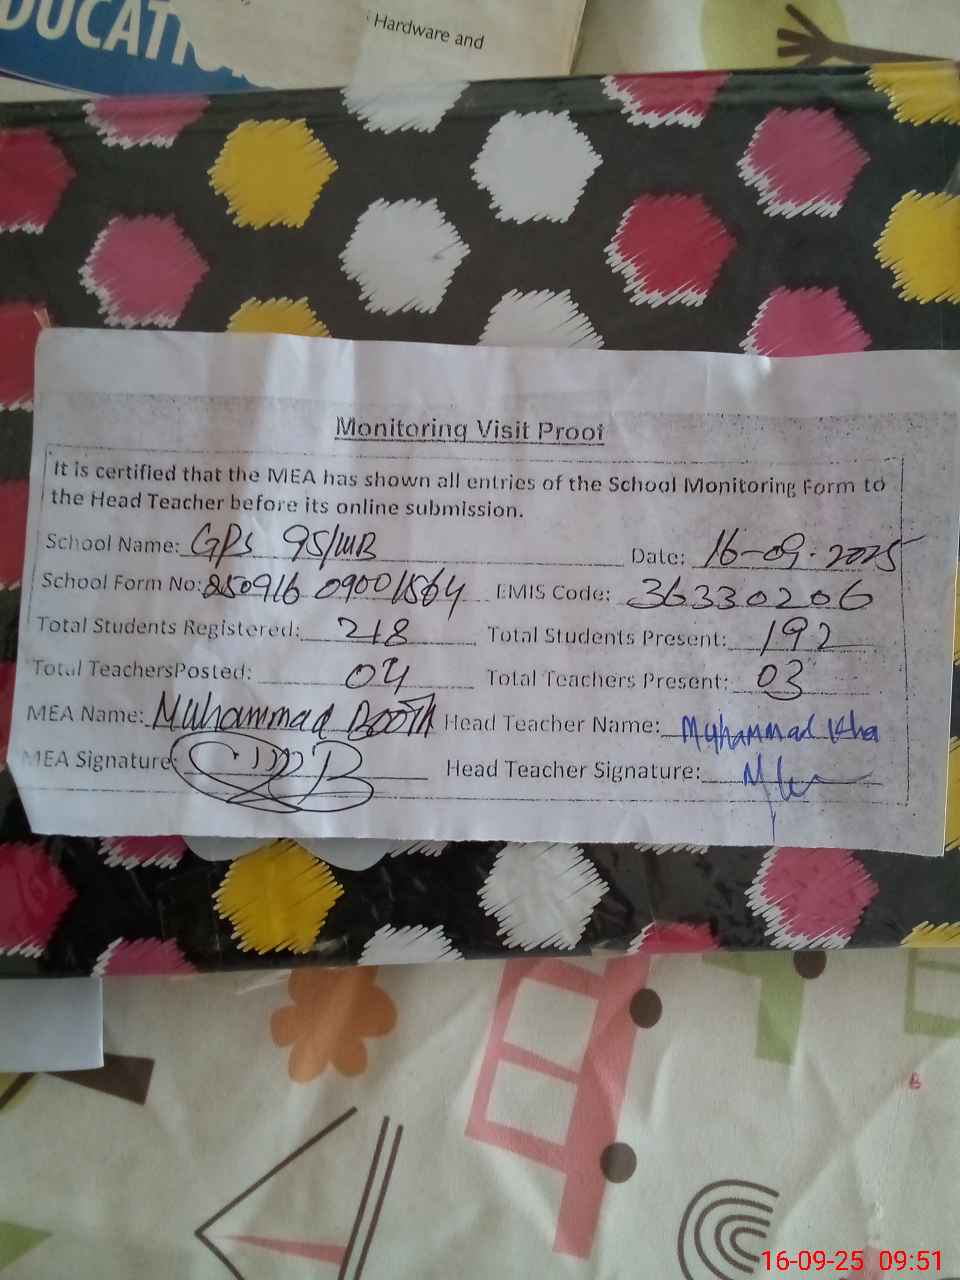 Hardware and
Monitoring Visit Proof
It is certified that the MEA has shown all entries of the School Monitoring Form to
the Head Teacher before its online submission.
School Name: GPS 95/MB Date: 16-09-2025
School Form No: 250916 09001564 EMIS Code: 36330206
Total Students Registered: 218 Total Students Present: 192
Total TeachersPosted: 04 Total Teachers Present: 03
MEA Name: Muhammad Boota Head Teacher Name: Muhammad
MEA Signature: Head Teacher Signature:
B
16-09-25 09:51